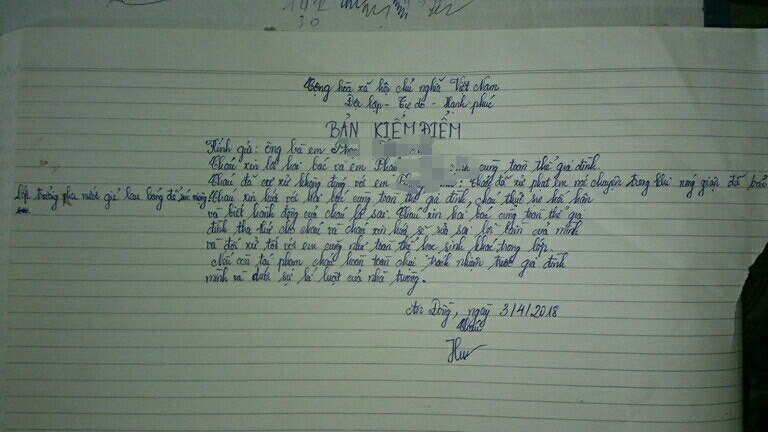 30
Cộng hòa xã hội chủ nghĩa Việt Nam
Độc lập - Tự do - Hạnh phúc
BẢN KIỂM ĐIỂM
Kính gửi: ông bà em
Cháu xin lỗi hai bác và em cùng toàn thể gia đình.
Cháu đã cư xử không đúng với em cháu đã xử phạt em nói chuyện trong khi nóng giận đã bảo
lớp trưởng pha nước giẻ lau bảng để súc miệng. Cháu xin hứa với hai bác cùng toàn thể gia đình, cháu thực sự hối hận
và biết hành động của cháu là sai. Cháu xin hai bác cùng toàn thể gia
đình tha thứ cho cháu và cháu xin hứa sẽ sửa sai lỗi lầm của mình
và đối xử tốt với em cũng như toàn thể học sinh khác trong lớp.
Nếu còn tái phạm cháu hoàn toàn chịu trách nhiệm trước gia đình
mình và dưới sự kỉ luật của nhà trường.
An Đồng, ngày 3/4/2018
Cháu